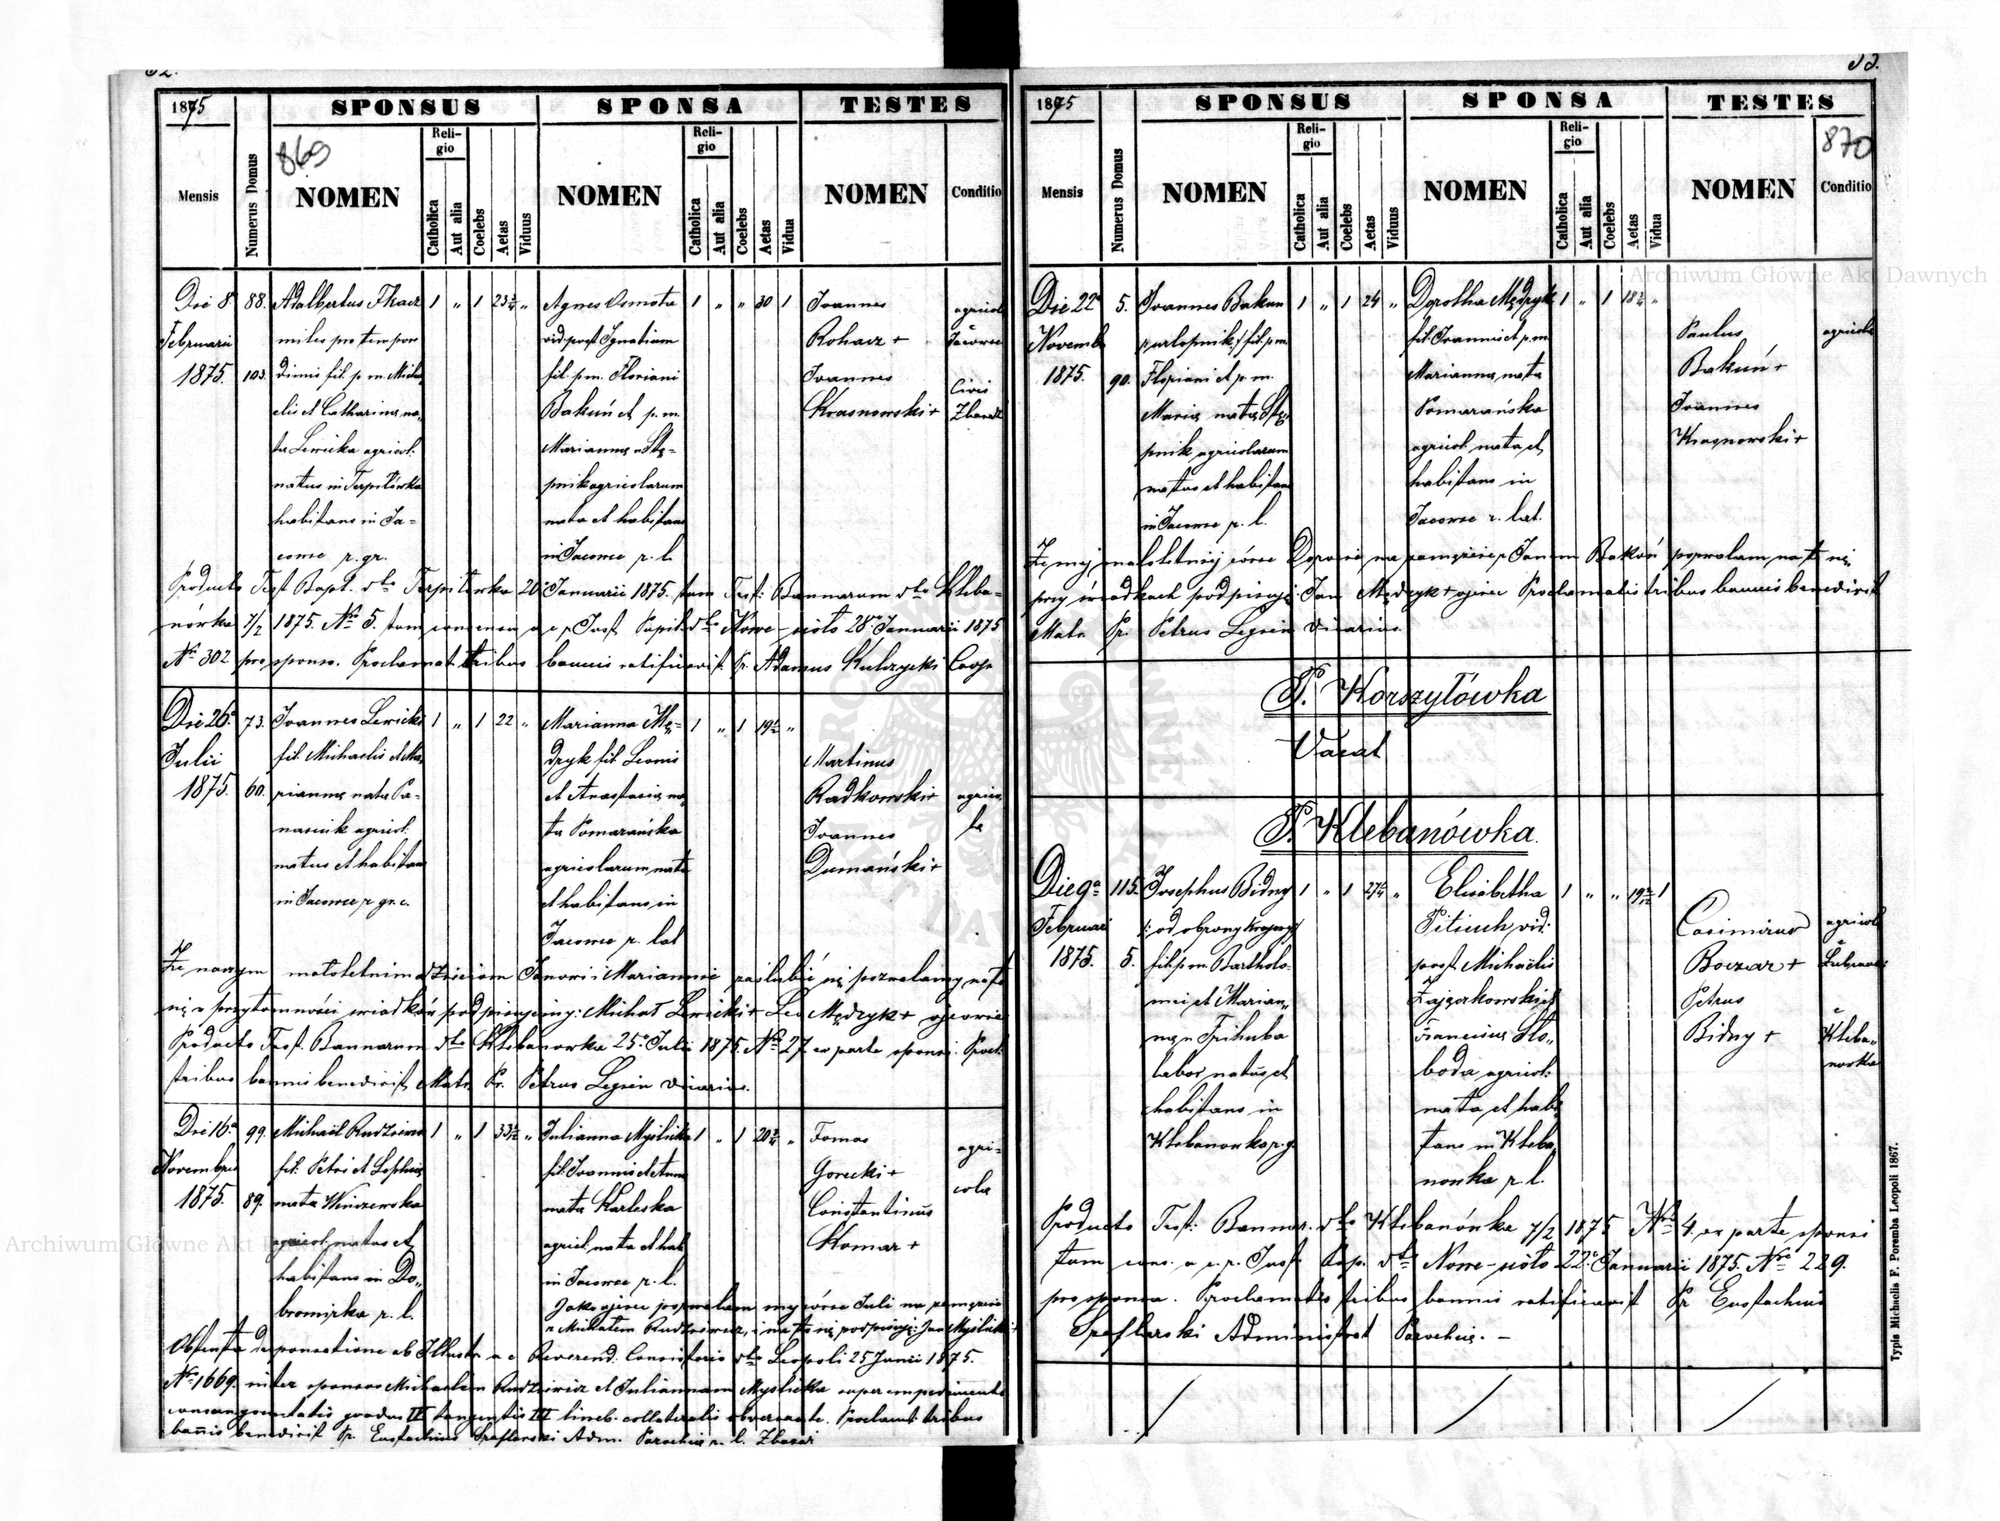 1875
SPONSUS
SPONSA
TESTES
869
Mensis
Numerus Domus
NOMEN
Religio
Catholica
Aut alia
Coelebs
Aetas
Viduus
NOMEN
Religio
Catholica
Aut alia
Coelebs
Aetas
Vidua
NOMEN
Conditio
Die 8
Februarii
1875.
88.
103.
Adalbertus Tkacz
miles pro tempore
dimis fil. p. m. Micha
elis et Catharinæ na
ta Lewicka agricol.
natus in Terpiłówka
habitans in Ja-
cowce r. gr.
1 " 1
Agnes Osmota
vid. post Ignatium
fil. p. m. Floriani
Bakuń et p. m.
Mariannæ n. Stę-
pnik agricolarum
nata et habitans
in Jacowce r. l.
1 " " 30 1
Joannes
Rohacz +
Joannes
Krasnowski +
agricol
Jacowce
Civis
Producto Test. Bapt. dto Terpiłówka 20 Januarii 1875. tum Test. Bannorum dto Kleba-
nówka 7/2 1875. Nro 5. tum consensu Nowe-sioło 28 Januarii 1875
Nro 302 pro sponso. Proclamat. tribus bannis ratificavit Pr. Adamus Kulczycki Coop.
Die 26
Julii
1875.
73.
60.
Joannes Lewicki
fil. Michaelis et Ma
riannæ nata Pa-
nasiuk agricol.
natus et habitans
in Jacowce r. gr. c.
1 " 1 22 "
Marianna Mę-
dryk fil. Leonis
et Anastasiæ na
ta Pomarańska
agricolarum nata
et habitans in
Jacowce r. lat
1 " 1
Martinus
Radkowski +
Joannes
Dumański +
agrico
la
Że naszym małoletnim dzieciom Janowi i Mariannie zaślubić się pozwalamy na to
się w przytomności świadków podpisujemy: Michał Lewicki + Leo Mędryk + ojcowie
Producto Test. Bannorum dto Klebanowka 25 Julii 1875. Nro 27 ex parte sponsi. Procl.
tribus bannis benedixit Matr. Pr. Petrus Legień vicarius.
Die 16
Novembris
1875.
99.
89.
Michaël Rudziewicz
fil. Petri et Sophiæ
nata Winczewska
agricol. natus et
habitans in Do-
bromirka r. l.
1 " 1
Julianna Myślicka
fil. Joannis et Annæ
nata Karleska
agricol. nata et hab
in Jacowce r. l.
1 " 1
Tomas
Gorecki +
Constantinus
Komar +
agri-
cola
Jako ojciec pozwalam mej córce Juli na zamęście
z Michałem Rudziewicz, i na to się podpisuję: Jan Myślicki +
Obtenta dispensatione ab Illustr. ac Reverend. Consistorio dto Leopoli 25 Junii 1875.
Nro 1669. inter sponsos Michaelem Rudziewicz et Juliannam Myślicka super impedimento
consanguinitatis gradus IV tangentis III lineæ collateralis obversante. Proclamat. tribus
bannis benedixit Pr. Eustachius Szeflarski Adm. Parochiæ r. l. Zbaraż
1875
SPONSUS
SPONSA
TESTES
870
Mensis
Numerus Domus
NOMEN
Religio
Catholica
Aut alia
Coelebs
Aetas
Viduus
NOMEN
Religio
Catholica
Aut alia
Coelebs
Aetas
Vidua
NOMEN
Conditio
Die 22
Novemb
1875.
5.
90.
Joannes Bakun
/:urlopnik:/ fil. p. m.
Floriani et p. m.
Mariæ nata Stę-
pnik agricolarum
natus et habitans
in Jacowce r. l.
1 " 1 24 "
Dorotha Mędryk
fil. Joannis et p. m.
Marianna nata
Pomarańska
agricol. nata et
habitans in
Jacowce r. lat.
1 " 1
Paulus
Bakuń +
Joannes
Krasnowski +
agricola
Że mej małoletniej córce Dorocie na zamęście z Janem Bakuń pozwalam na to się
przy świadkach podpisuję Jan Mędryk + ojciec Proclamatis tribus bannis benedixit
Matr. Pr. Petrus Legień Vicarius.
P. Korszyłówka
Vacat
P. Klebanówka.
Die 9a
Februarii
1875.
115.
5.
Josephus Bidny
/: od obrony krajowej
fil. p. m. Bartholo-
mei et Marian-
næ n. Trihuba
labor natus et
habitans in
Klebanowka r. g.
1 " 1
Elisabetha
Pitiuch vid.
post Michaëlis
Zajączkowski
Franciscus Sło-
boda agricol.
nata et habi-
tans in Kleba
nowka r. l.
1 " " 1
Casimirus
Boczar +
Petrus
Bidny +
agricola
Klebanowka
Producto Test. Bannor. dto Klebanówka 7/2 1875 Nro 4. ex parte sponsi
tum cons. Nowe-sioło 22 Januarii 1875. Nro 229.
pro sponsa. Proclamatis tribus bannis ratificavit Pr. Eustachius
Szeflarski Administrat Parochiæ. -
Typis Michaelis F. Poremba Leopoli 1867.
Archiwum Główne Akt Dawnych
Archiwum Główne Akt Dawnych